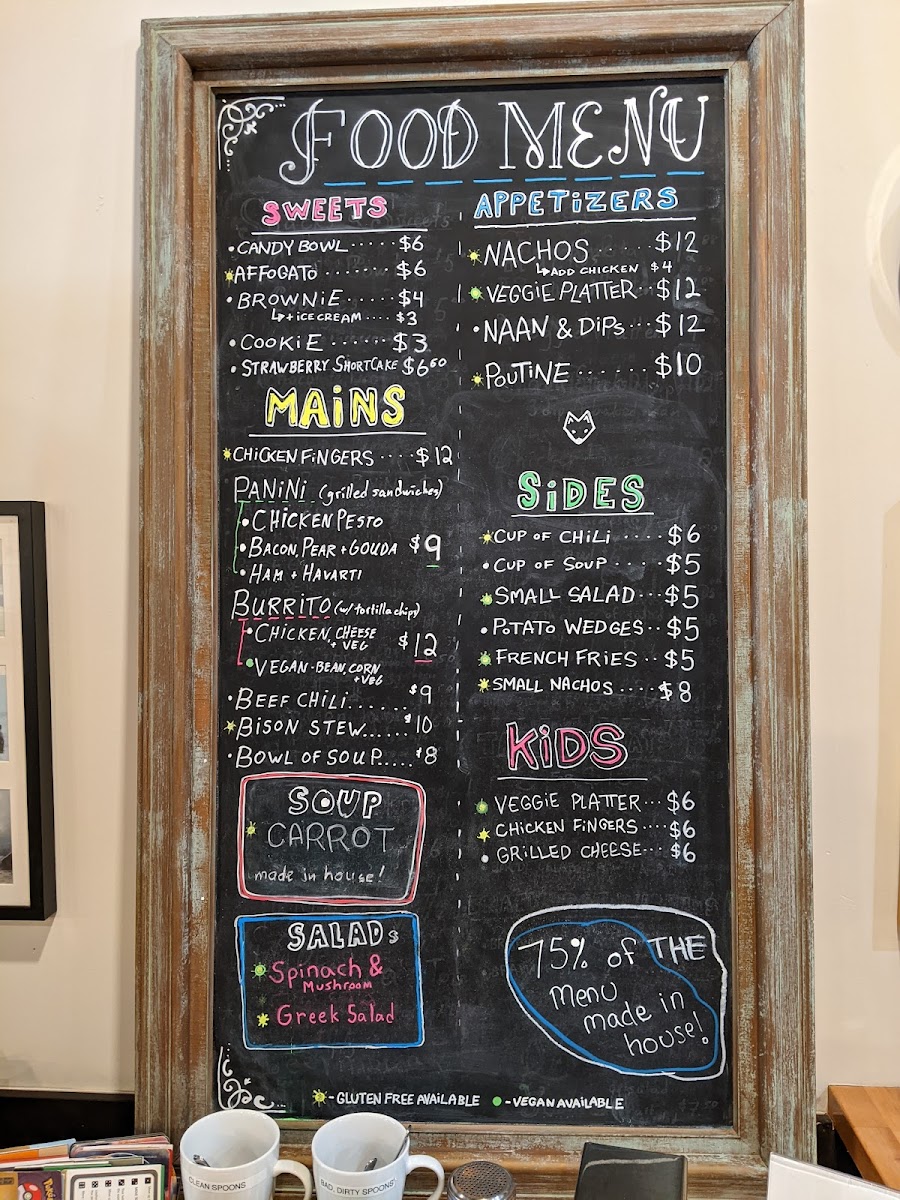 FOOD MENU
SWEETS
• CANDY BOWL ····· $6
AFFOGATO ········ $6
• BROWNIE ······ $4
↳ + ICE CREAM ···· $3
• COOKIE ····· $3
• STRAWBERRY SHORTCAKE $6⁵⁰
MAINS
CHICKEN FINGERS ···· $12
PANINI (grilled sandwiches)
• CHICKEN PESTO
• BACON, PEAR + GOUDA $9
• HAM + HAVARTI
BURRITO (w/ tortilla chips)
• CHICKEN, CHEESE
+ VEG $12
• VEGAN - BEAN, CORN
+ VEG
• BEEF CHILI ....... $9
BISON STEW ...... $10
• BOWL OF SOUP ..... $8
SOUP
CARROT
made in house!
SALADs
Spinach &
MUSHROOM
Greek Salad
APPETIZERS
NACHOS ····· $12
↳ ADD CHICKEN $4
VEGGIE PLATTER ·· $12
• NAAN & DIPs ··· $12
POUTINE ······ $10
SIDES
CUP OF CHILI ···· $6
• CUP OF SOUP ···· $5
SMALL SALAD ··· $5
• POTATO WEDGES ·· $5
FRENCH FRIES ·· $5
SMALL NACHOS ···· $8
KIDS
VEGGIE PLATTER ··· $6
CHICKEN FINGERS ···· $6
• GRILLED CHEESE ··· $6
75% of THE
Menu
made in
house!
- GLUTEN FREE AVAILABLE • - VEGAN AVAILABLE
CLEAN SPOONS
BAD, DIRTY SPOONS